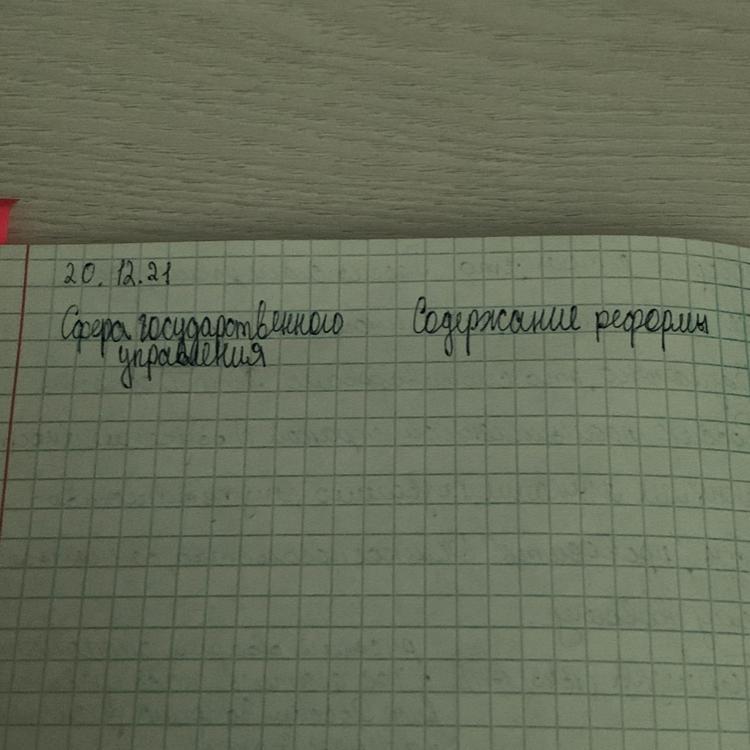 20.12.21
Сфера государственного Содержание реформы
управления